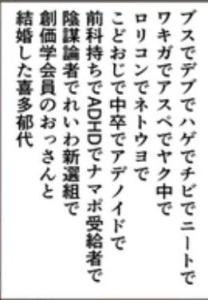 ブスでデブでハゲでチビでニートで
ワキガでアスペでヤク中で
ロリコンでネトウヨで
こどおじで中卒でアデノイドで
前科持ちでADHDでナマポ受給者で
陰謀論者でれいわ新選組で
創価学会員のおっさんと
結婚した喜多郁代